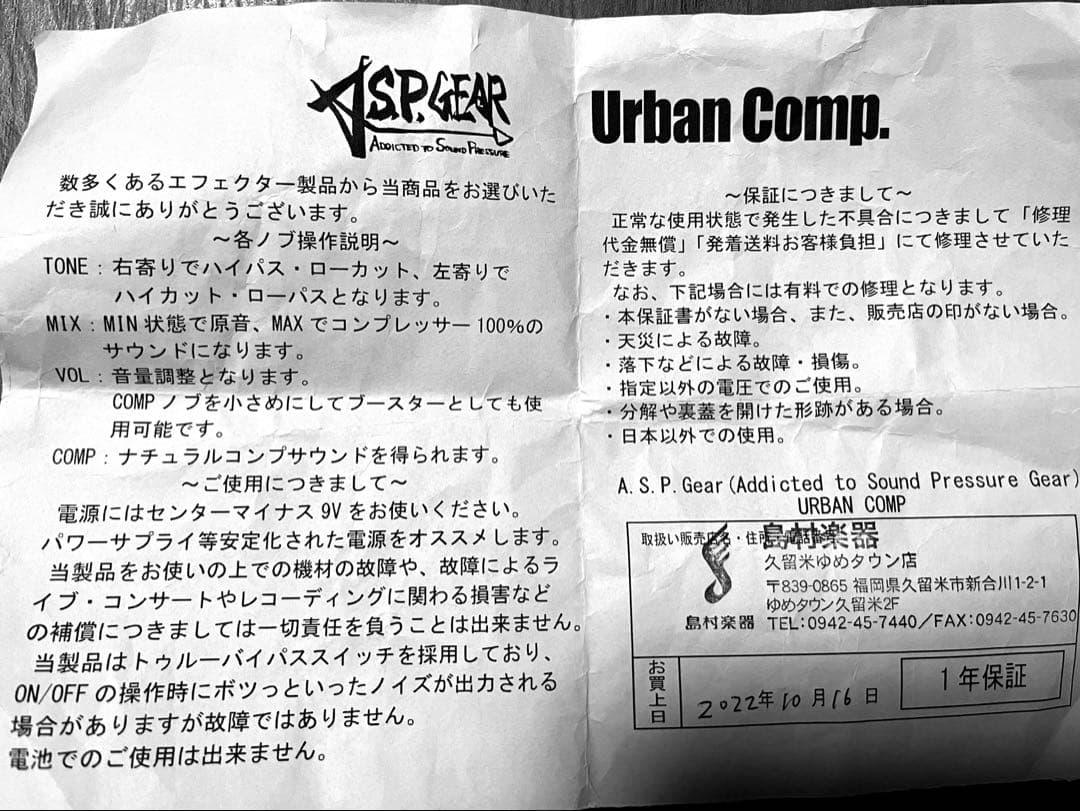 A.S.P.GEAR
ADDICTED TO SOUND PRESSURE
数多くあるエフェクター製品から当商品をお選びいた
だき誠にありがとうございます。
～各ノブ操作説明～
TONE：右寄りでハイパス・ローカット、左寄りで
ハイカット・ローパスとなります。
MIX：MIN 状態で原音、MAX でコンプレッサー100%の
サウンドになります。
VOL：音量調整となります。
COMP ノブを小さめにしてブースターとしても使
用可能です。
COMP：ナチュラルコンプサウンドを得られます。
～ご使用につきまして～
電源にはセンターマイナス 9V をお使いください。
パワーサプライ等安定化された電源をオススメします。
当製品をお使いの上での機材の故障や、故障によるラ
イブ・コンサートやレコーディングに関わる損害など
の補償につきましては一切責任を負うことは出来ません。
当製品はトゥルーバイパススイッチを採用しており、
ON/OFF の操作時にボツっといったノイズが出力される
場合がありますが故障ではありません。
電池でのご使用は出来ません。
Urban Comp.
～保証につきまして～
正常な使用状態で発生した不具合につきまして「修理
代金無償」「発着送料お客様負担」にて修理させていた
だきます。
なお、下記場合には有料での修理となります。
・本保証書がない場合、また、販売店の印がない場合。
・天災による故障。
・落下などによる故障・損傷。
・指定以外の電圧でのご使用。
・分解や裏蓋を開けた形跡がある場合。
・日本以外での使用。
A.S.P.Gear(Addicted to Sound Pressure Gear)
URBAN COMP
取扱い販売店名・住所
島村楽器
久留米ゆめタウン店
〒839-0865 福岡県久留米市新合川1-2-1
ゆめタウン久留米2F
島村楽器 TEL:0942-45-7440／FAX:0942-45-7630
お買上日
2022年10月16日
1年保証